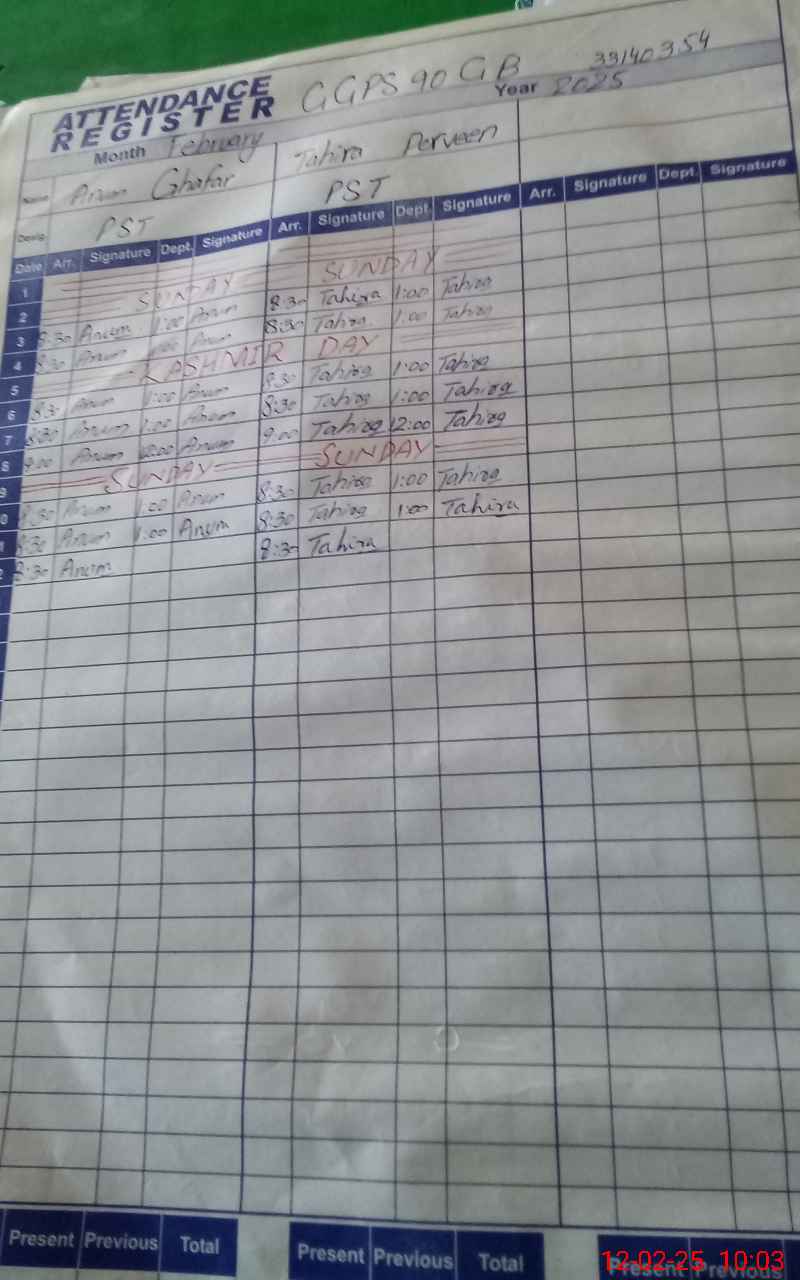 ATTENDANCE REGISTER GGPS 90 GB 33140354
Month February Year 2025
Name Anum Ghafar Tahira Perveen
Desig. PST PST
Date Arr. Signature Dept. Signature Arr. Signature Dept. Signature Arr. Signature Dept. Signature
1
2 SUNDAY SUNDAY
3 8:30 Anum 1:00 Anum 8:30 Tahira 1:00 Tahira
4 8:30 Anum Anum 8:30 Tahira 1:00 Tahira
5 KASHMIR DAY
6 8:30 Anum 1:00 Anum 8:30 Tahira 1:00 Tahira
7 8:30 Anum 1:00 Anum 8:30 Tahira 1:00 Tahira
8 9:00 Anum 12:00 Anum 9:00 Tahira 12:00 Tahira
9 SUNDAY SUNDAY
0 8:30 Anum 1:00 Anum 8:30 Tahira 1:00 Tahira
1 8:30 Anum 1:00 Anum 8:30 Tahira 1:00 Tahira
2 8:30 Anum 8:30 Tahira
Present Previous Total Present Previous Total Present Previous
12-02-25 10:03